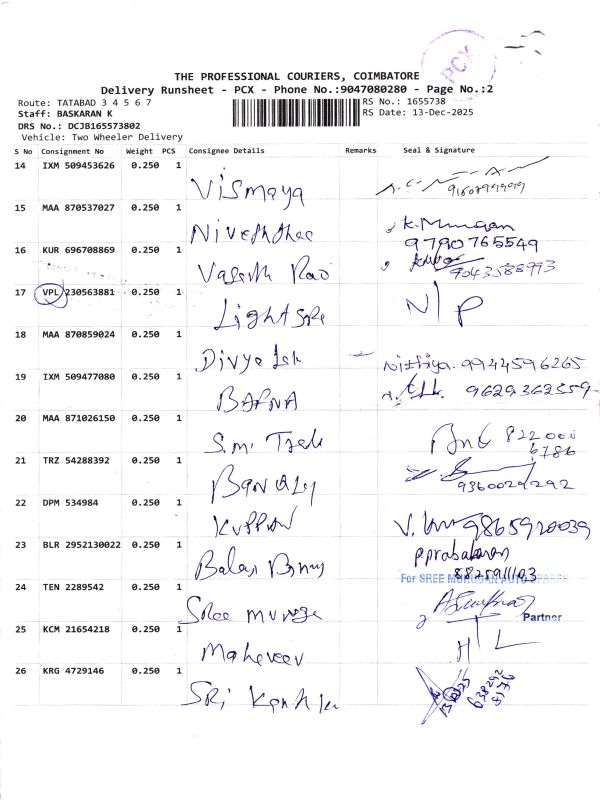 PCX
THE PROFESSIONAL COURIERS, COIMBATORE
Delivery Runsheet - PCX - Phone No.:9047080280 - Page No.:2
Route: TATABAD 3 4 5 6 7
RS No.: 1655738
Staff: BASKARAN K
RS Date: 13-Dec-2025
DRS No.: DCJB165573802
Vehicle: Two Wheeler Delivery
S No Consignment No Weight PCS Consignee Details Remarks Seal & Signature
14 IXM 509453626 0.250 1
Vismaya
15 MAA 870537027 0.250 1
K. Murugan
9790765549
16 KUR 696708869 0.250 1
Vasanth Rao
9043588993
17 VPL 230563881 0.250 1
Light
N/P
18 MAA 870859024 0.250 1
Divya
Nithiya. 9944596265
19 IXM 509477080 0.250 1
BAFNA
9629362359
20 MAA 871026150 0.250 1
S.M.
822000
6786
21 TRZ 54288392 0.250 1
9360029292
22 DPM 534984 0.250 1
KUPPAN
9865920039
23 BLR 2952130022 0.250 1
Balaji
P.Prabakaran
8825911103
For SREE MURUGAN AUTO SPARES
24 TEN 2289542 0.250 1
Sree
Partner
25 KCM 21654218 0.250 1
Maheveer
H L
26 KRG 4729146 0.250 1
Sri
638292
8176